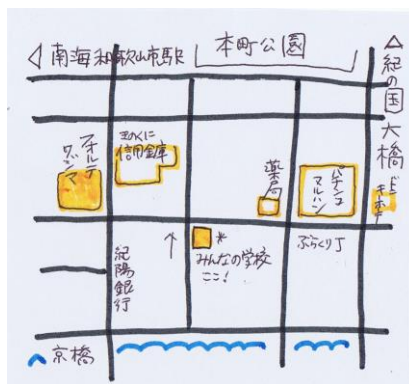 ◁南海和歌山市駅
本町公園
△紀の国大橋
フォルテワジマ
きのくに
信用金庫
薬局
パチンコ
マルハン
ドンキホーテ
↑
*
みんなの学校
ここ!
ぶらくり丁
紀陽銀行
京橋